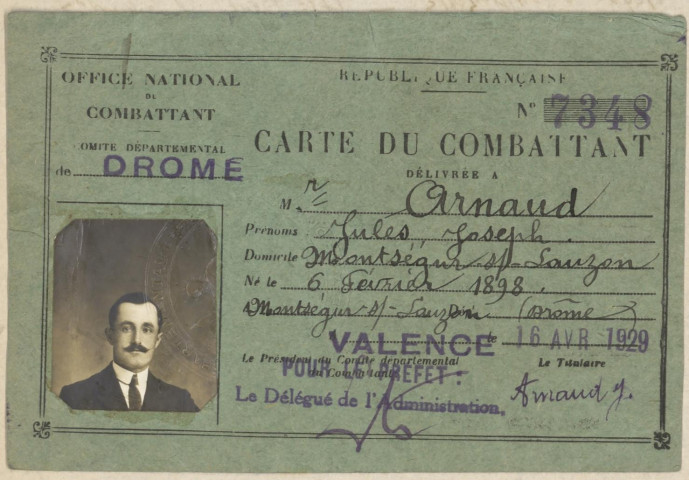 OFFICE NATIONAL
DU
COMBATTANT
COMITÉ DÉPARTEMENTAL
de DROME
RÉPUBLIQUE FRANÇAISE
N° 7348
CARTE DU COMBATTANT
DÉLIVRÉE A
M. r Arnaud
Prénoms Jules, Joseph.
Domicile Montségur s/- Lauzon
Né le 6 Février 1898.
à Montségur s/- Lauzon (Drôme)
VALENCE le 16 AVR 1929
Le Président du Comité départemental
du Combattant
POUR LE PREFET :
Le Délégué de l'Administration.
Le Titulaire
Arnaud J.